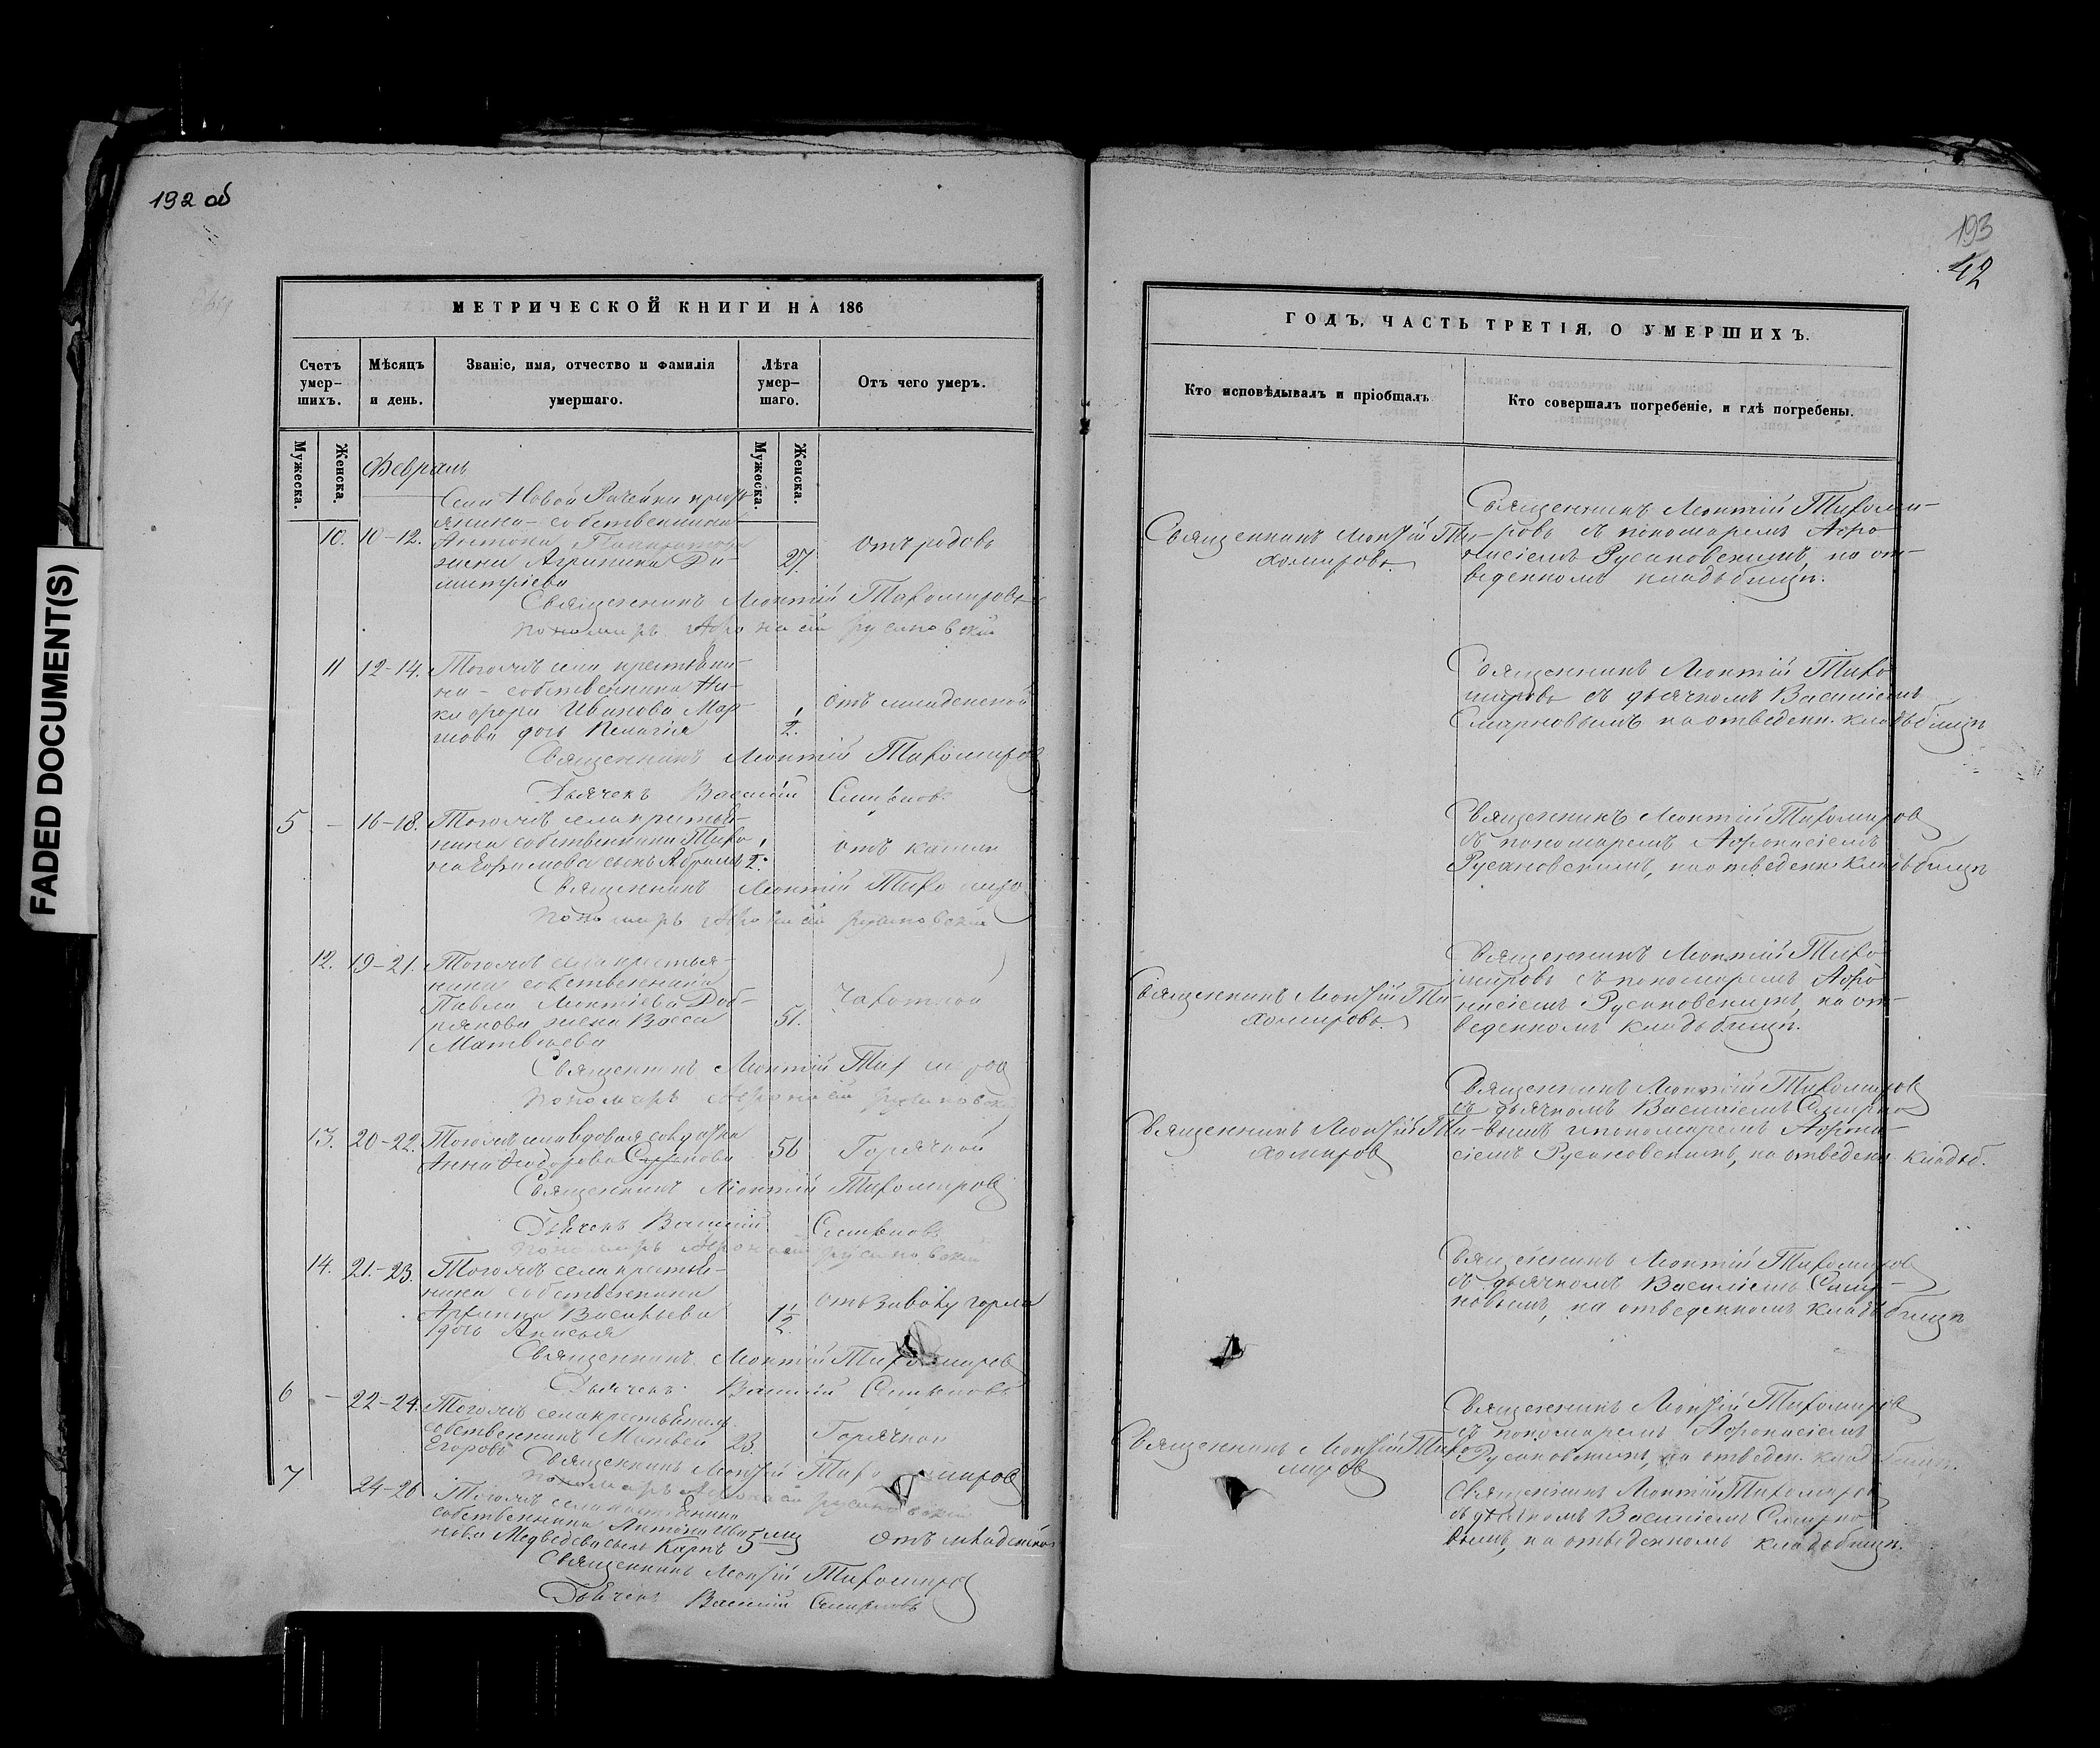 192 об
193
42
FADED DOCUMENT(S)
МЕТРИЧЕСКОЙ КНИГИ НА 186
Счетъ умер-шихъ.
Мѣсяцъ и день.
Званіе, имя, отчество и фамилія умершаго.
Лѣта умер-шаго.
Отъ чего умеръ.
Мужеска.
Женска.
Мужеска.
Женска.
Февраль
Села Новой Рачейки крест-
янина-собственника
10. 10-12. Антона
жена Агрипина Ди- 27. отъ родовъ
митріева
Священникъ Леонтій Тихомировъ
Пономарь Афонасій Русановскій
11 12-14. Тогожъ села крестьяни-
на-собственника Ни-
кифора Иванова Мар- 1/2. отъ младенской
дочь Пелагія
Священникъ Леонтій Тихомировъ
Дьячекъ Василій Смирновъ
5 - 16-18. Тогожъ села крестья-
нина собственника Тихо- отъ кашля
на Ефимова сынъ Абрамъ 1/2.
Священникъ Леонтій Тихомировъ
Пономарь Афонасій Русановскій
12. 19-21. Тогожъ села крестья-
нина собственника
Павла Леонтіева Доб- Чахоткой
рякова жена Васса 51.
Матвѣева
Священникъ Леонтій Тихомировъ
Пономарь Афонасій Русановскій
13. 20-22. Тогожъ села вдовая солдатка 56 Горячкой
Анна Ѳеодорова
Священникъ Леонтій Тихомировъ
Дьячекъ Василій Смирновъ
Пономарь Афонасій Русановскій
14. 21-23. Тогожъ села крестья-
нина собственника
Васильева 1 1/2 отъ горла
дочь Анисья
Священникъ Леонтій Тихомировъ
Дьячекъ Василій Смирновъ
6 - 22-24. Тогожъ села крестьянинъ
собственникъ Матвей 23. Горячкой
Егоровъ
Священникъ Леонтій Тихомировъ
Пономарь Афонасій Русановскій
7 24-26 Тогожъ села крестьянина
собственника Антона Ива-
нова Медведева сынъ Карпъ 5 отъ младенской
Священникъ Леонтій Тихомировъ
Дьячекъ Василій Смирновъ
ГОДЪ, ЧАСТЬ ТРЕТІЯ, О УМЕРШИХЪ.
Кто исповѣдывалъ и пріобщалъ
Кто совершалъ погребеніе, и гдѣ погребены.
Священникъ Леонтій Ти-
хомировъ.
Священникъ Леонтій Тихоми-
ровъ съ пономаремъ Афо-
насіемъ Русановскимъ, на от-
веденномъ кладьбищѣ.
Священникъ Леонтій Тихо
мировъ съ дьячкомъ Василіемъ
Смирновымъ на отведенн. кладьбищѣ
Священникъ Леонтій Тихомировъ
съ пономаремъ Афонасіемъ
Русановскимъ, на отведенн. кладьбищѣ
Священникъ Леонтій Ти-
хомировъ.
Священникъ Леонтій Тихо
мировъ съ пономаремъ Афо
насіемъ Русановскимъ, на от-
веденномъ кладьбищѣ.
Священникъ Леонтій Ти-
хомировъ
Священникъ Леонтій Тихомировъ
съ дьячкомъ Василіемъ Смирно-
вымъ и пономаремъ Афона-
сіемъ Русановскимъ, на отведенн. кладьб.
Священникъ Леонтій Тихомировъ
съ дьячкомъ Василіемъ Смир-
новымъ, на отведенномъ кладьбищѣ
Священникъ Леонтій Тихо
мировъ
Священникъ Леонтій Тихомировъ
съ пономаремъ Афонасіемъ
Русановскимъ, на отведен. кладьбищѣ.
Священникъ Леонтій Тихомировъ
съ дьячкомъ Василіемъ Смирно
вымъ, на отведенномъ кладьбищѣ.